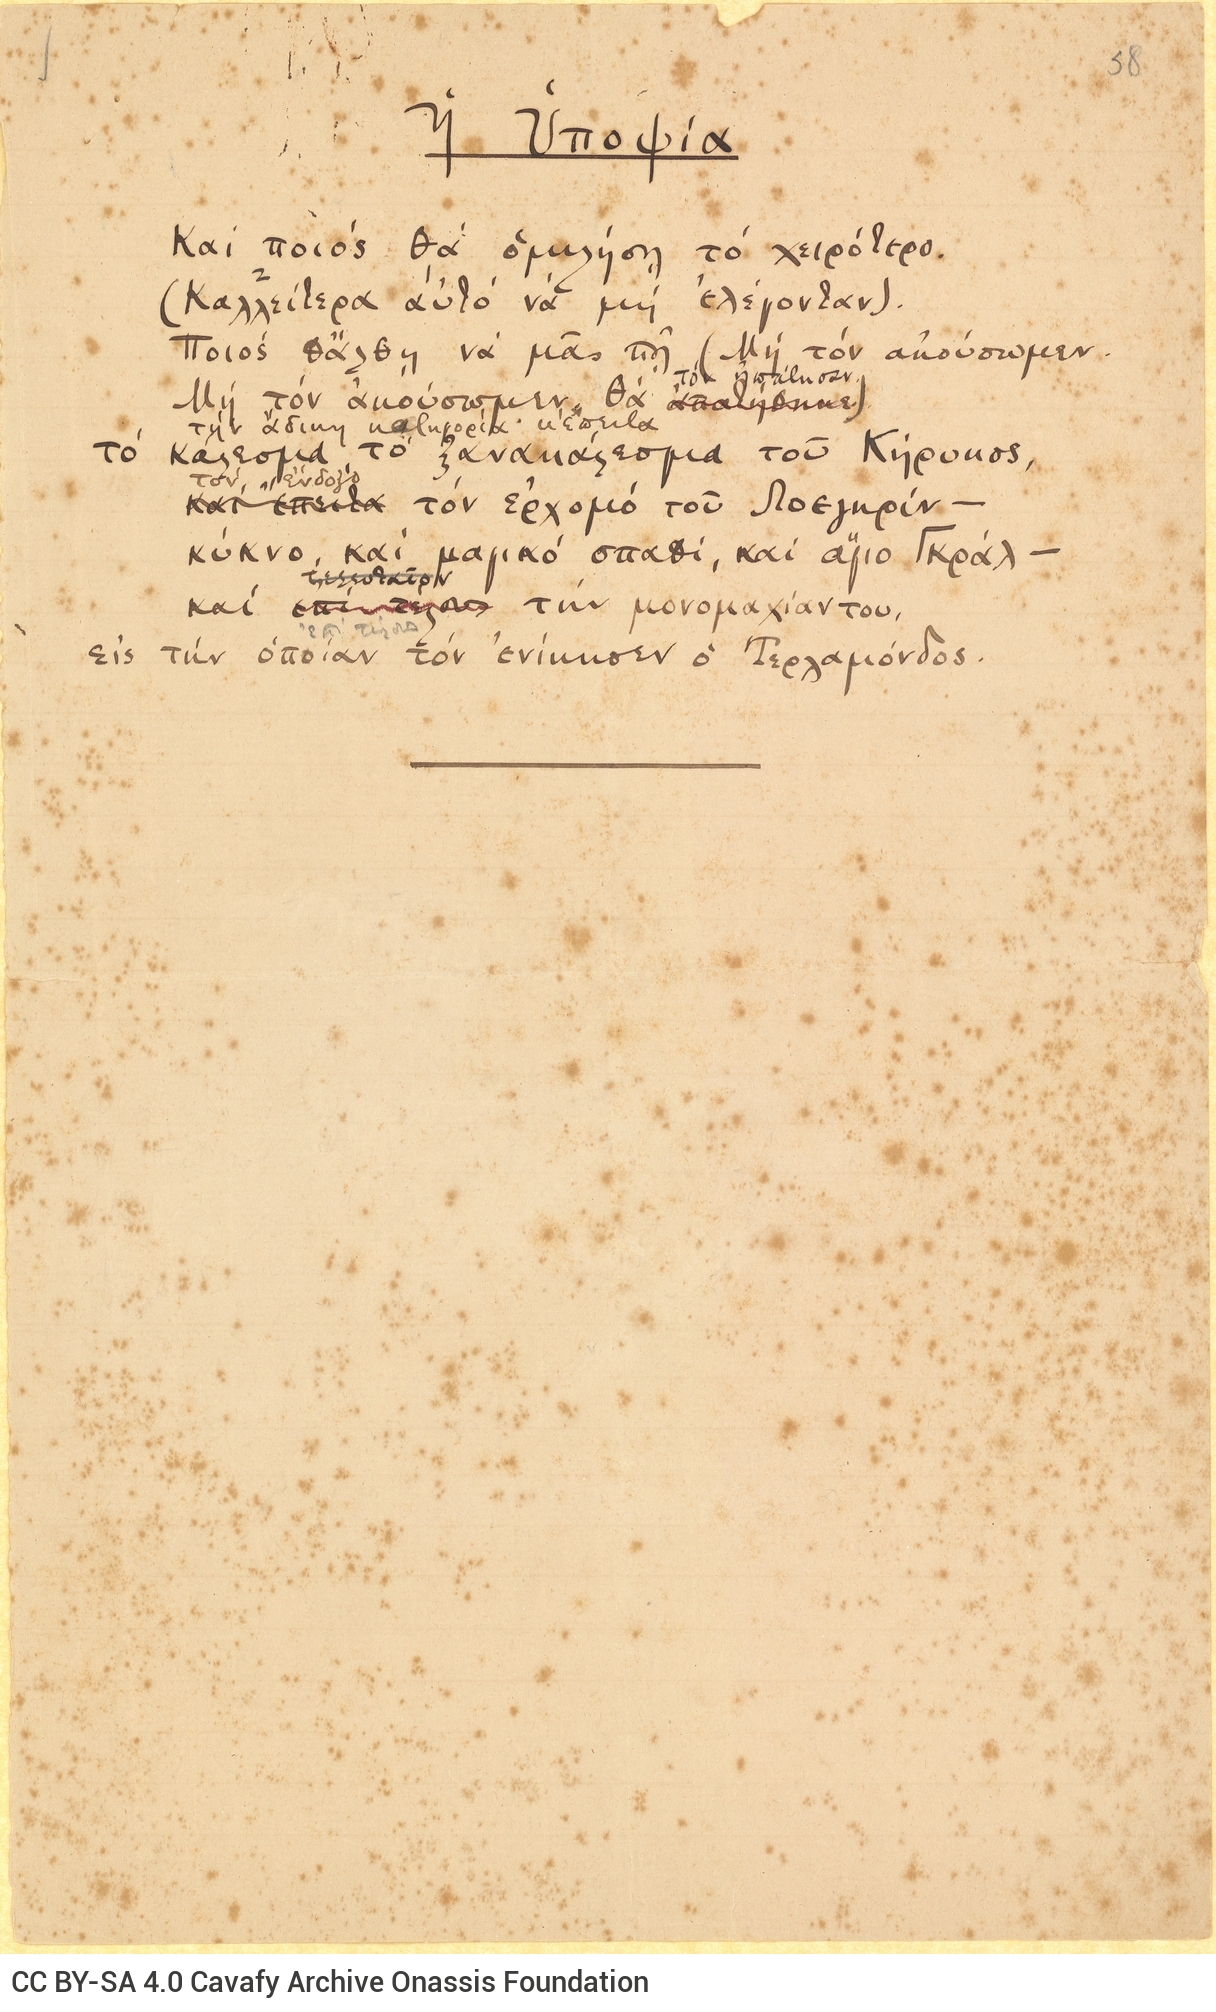 58
Ἡ Ὑποψία
Καί ποιός θά ὁμιλήσῃ τό χειρότερο.
(Καλλείτερα αὐτό νά μή ἐλέγονταν).
Ποιός θἄλθῃ νά μᾶς πῇ (Μή τόν ἀκούσωμεν.
τόν ἠπάτησαν
Μή τόν ἀκούσωμεν, θά ἀπατήθηκε)
τήν ἄδικη κατηγορία· κ' ἔπειτα
τό κάλεσμα τό ξανακάλεσμα τοῦ Κήρυκος,
τόν ἔνδοξο
καί ἔπειτα τόν ἐρχομό τοῦ Λοεγκρίν —
κύκνο, καί μαγικό σπαθί, καί ἅγιο Γκράλ —
τελευταῖον
καί ἐπί τέλους τήν μονομαχίαν του,
ἐπί τέλους
εἰς τήν ὁποίαν τόν ἐνίκησεν ὁ Τερλαμόνδος.
CC BY-SA 4.0 Cavafy Archive Onassis Foundation